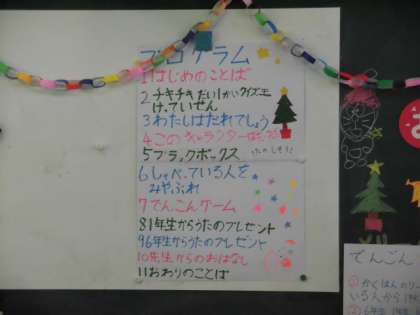 プログラム
1はじめのことば
2チキチキだい1かいクイズ王
けっていせん
3わたしはだれでしょう
4このキャラクターは
5ブラックボックス
6しゃべっている人を
みやぶれ
7でんごんゲーム
81年生からうたのプレゼント
96年生からうたのプレゼント
10先生からのおはなし
11おわりのことば
でんごん
①かくはんのリー
いる人から1
②6年生